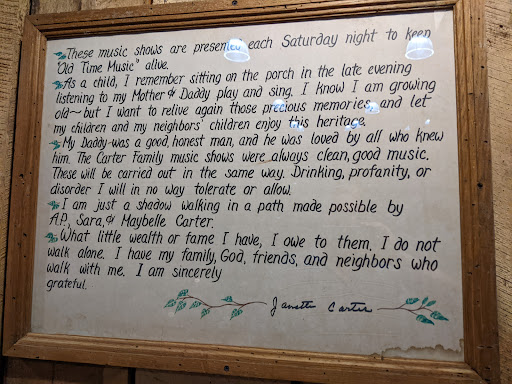 These music shows are presented each Saturday night to keep
"Old Time Music" alive.
As a child, I remember sitting on the porch in the late evening
listening to my Mother & Daddy play and sing. I know I am growing
old~but I want to relive again those precious memories, and let
my children and my neighbors' children enjoy this heritage.
My Daddy was a good, honest man, and he was loved by all who knew
him. The Carter Family music shows were always clean, good music.
These will be carried out in the same way. Drinking, profanity, or
disorder I will in no way tolerate or allow.
I am just a shadow walking in a path made possible by
A.P., Sara, & Maybelle Carter.
What little wealth or fame I have, I owe to them. I do not
walk alone. I have my family, God, friends, and neighbors who
walk with me. I am sincerely
grateful.
Janette Carter